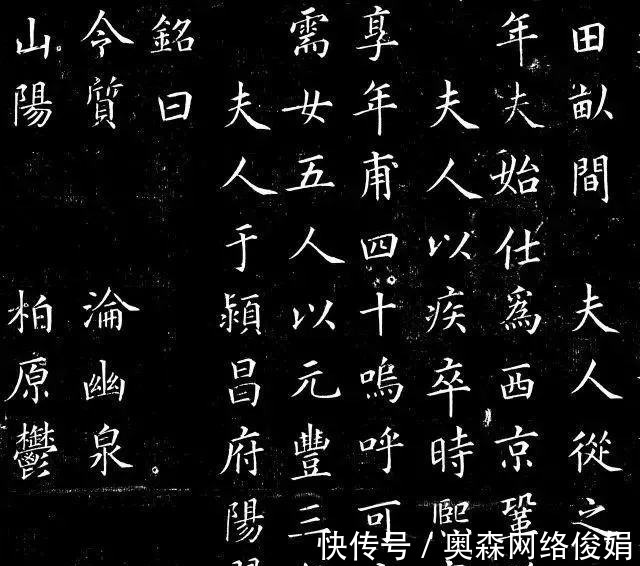 田畝間　夫人從之
年夫始仕爲西京鞏
夫人以疾卒時熙
享年甫四十嗚呼可
需女五人以元豐三
夫人于潁昌府陽
銘曰
令質　淪幽泉
山陽　柏原鬱
快传号 / 奥森网络俊娟